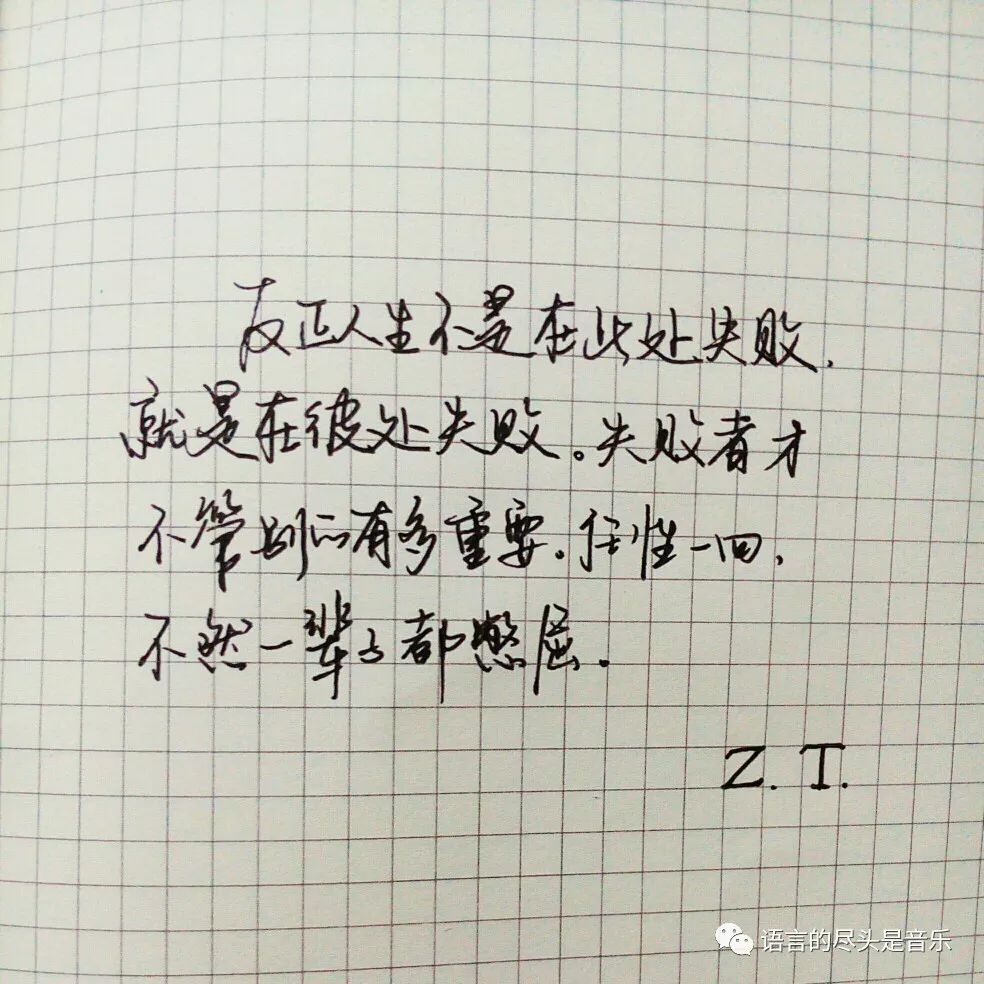 反正人生不是在此处失败,
就是在彼处失败。失败者才
不管别的有多重要.任性一回,
不然一辈子都憋屈.
Z. T.
语言的尽头是音乐